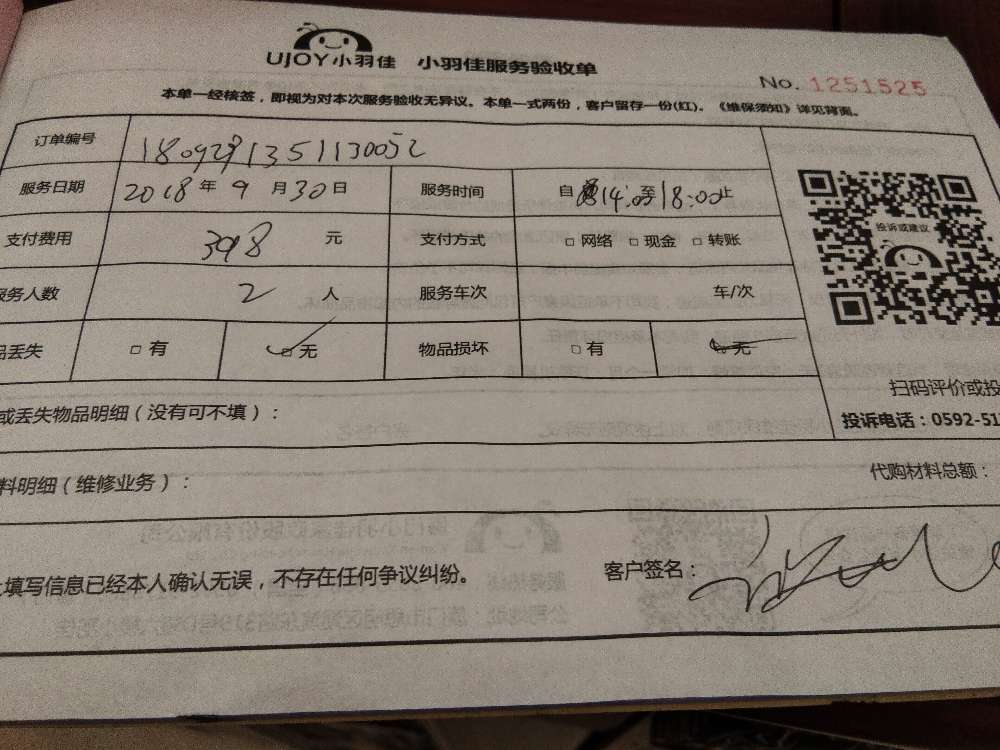 UJOY小羽佳 小羽佳服务验收单
No. 1251525
本单一经核签，即视为对本次服务验收无异议。本单一式两份，客户留存一份(红)。《维保须知》详见背面。
订单编号 18092913511130052
服务日期 2018年9月30日 服务时间 自14:00至18:00止
支付费用 398元 支付方式 □网络 □现金 □转账
投诉或建议
服务人数 2人 服务车次 车/次
品丢失 □有 □无 物品损坏 □有 □无
扫码评价或投
或丢失物品明细（没有可不填）：
投诉电话：0592-51
料明细（维修业务）：
代购材料总额：
上填写信息已经本人确认无误，不存在任何争议纠纷。 客户签名：